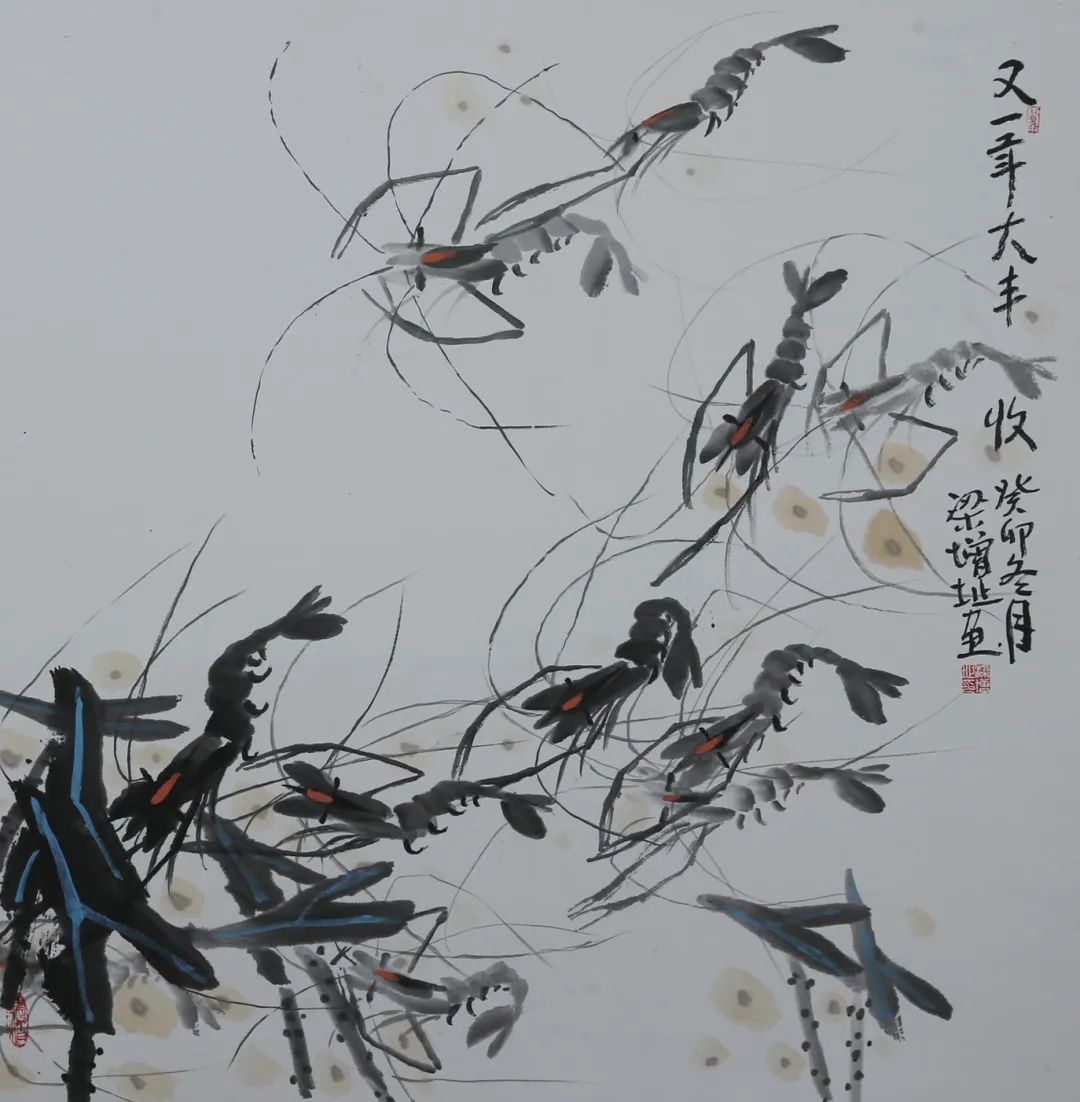 又一年大丰收
癸卯冬月
梁增址画